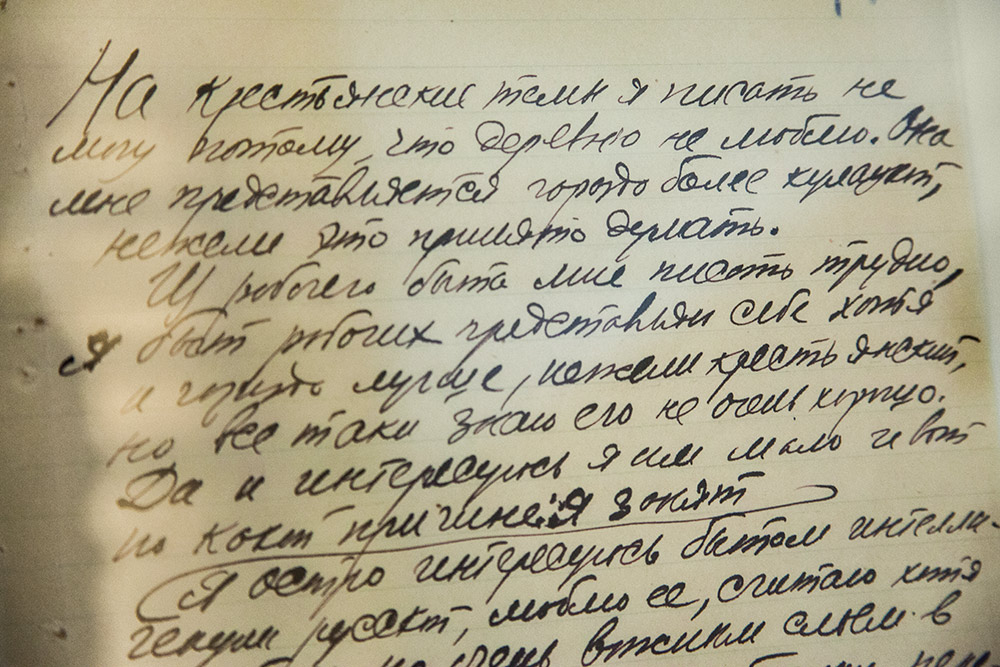 На крестьянские темы я писать не
могу потому, что деревню не люблю. Она
мне представляется гораздо более кулацкой,
нежели это принято думать.
Из рабочего быта мне писать трудно,
я быт рабочих представляю себе хотя
и гораздо лучше, нежели крестьянский,
но все таки знаю его не очень хорошо.
Да и интересуюсь я им мало и вот
по какой причине: я занят
Я остро интересуюсь бытом интелли-
генции русской, люблю ее, считаю хотя
но очень важным слоем в